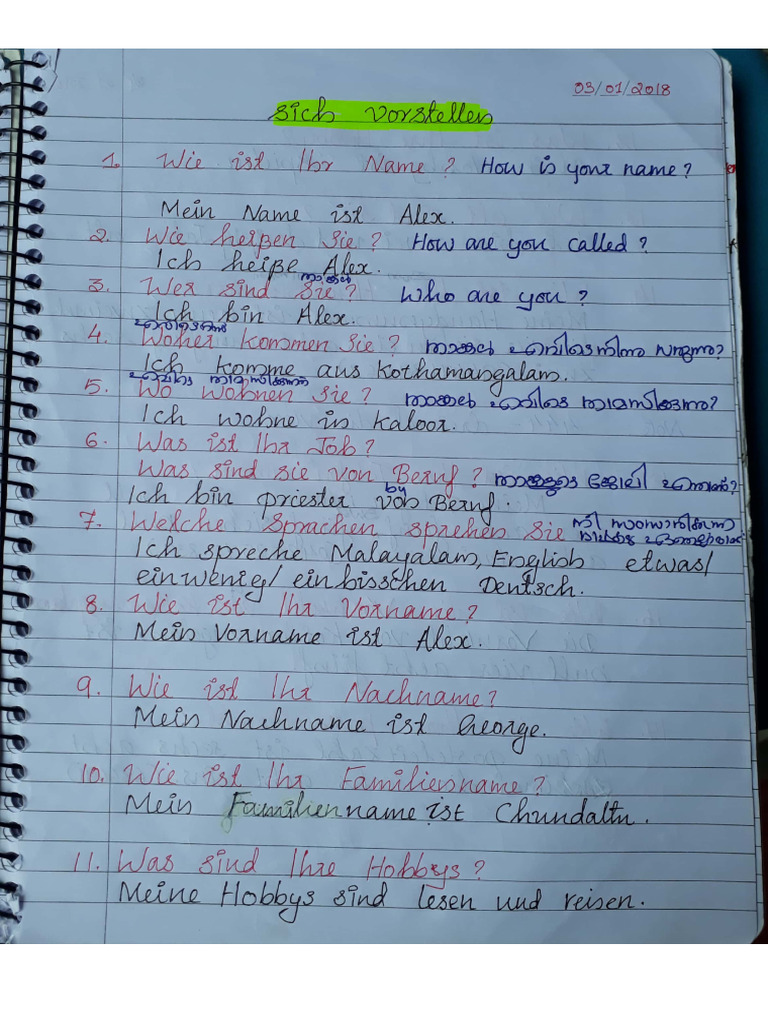 03/01/2018
sich vorstellen
1. Wie ist Ihr Name? How is your name?
Mein Name ist Alex.
2. Wie heißen Sie? How are you called?
Ich heiße Alex.
താങ്കൾ
3. Wer sind Sie? Who are you?
Ich bin Alex.
4. Woher kommen Sie? താങ്കൾ എവിടെനിന്നു വരുന്നു?
Ich komme aus Kothamangalam.
എവിടെ താമസിക്കുന്നു
5. Wo wohnen Sie? താങ്കൾ എവിടെ താമസിക്കുന്നു?
Ich wohne in Kaloor.
6. Was ist Ihr Job?
Was sind sie von Beruf? താങ്കളുടെ ജോലി എന്താണ്?
by
Ich bin priester von Beruf.
7. Welche Sprachen sprehen Sie നീ സംസാരിക്കുന്ന
Ich spreche Malayalam, English etwas/
einwenig/ einbisschen Deutsch.
8. Wie ist Ihr Vorname?
Mein Vorname ist Alex.
9. Wie ist Ihr Nachname?
Mein Nachname ist George.
10. Wie ist Ihr Familiensname?
Mein Familienname ist
11. Was sind Ihre Hobbys?
Meine Hobbys sind lesen und reisen.